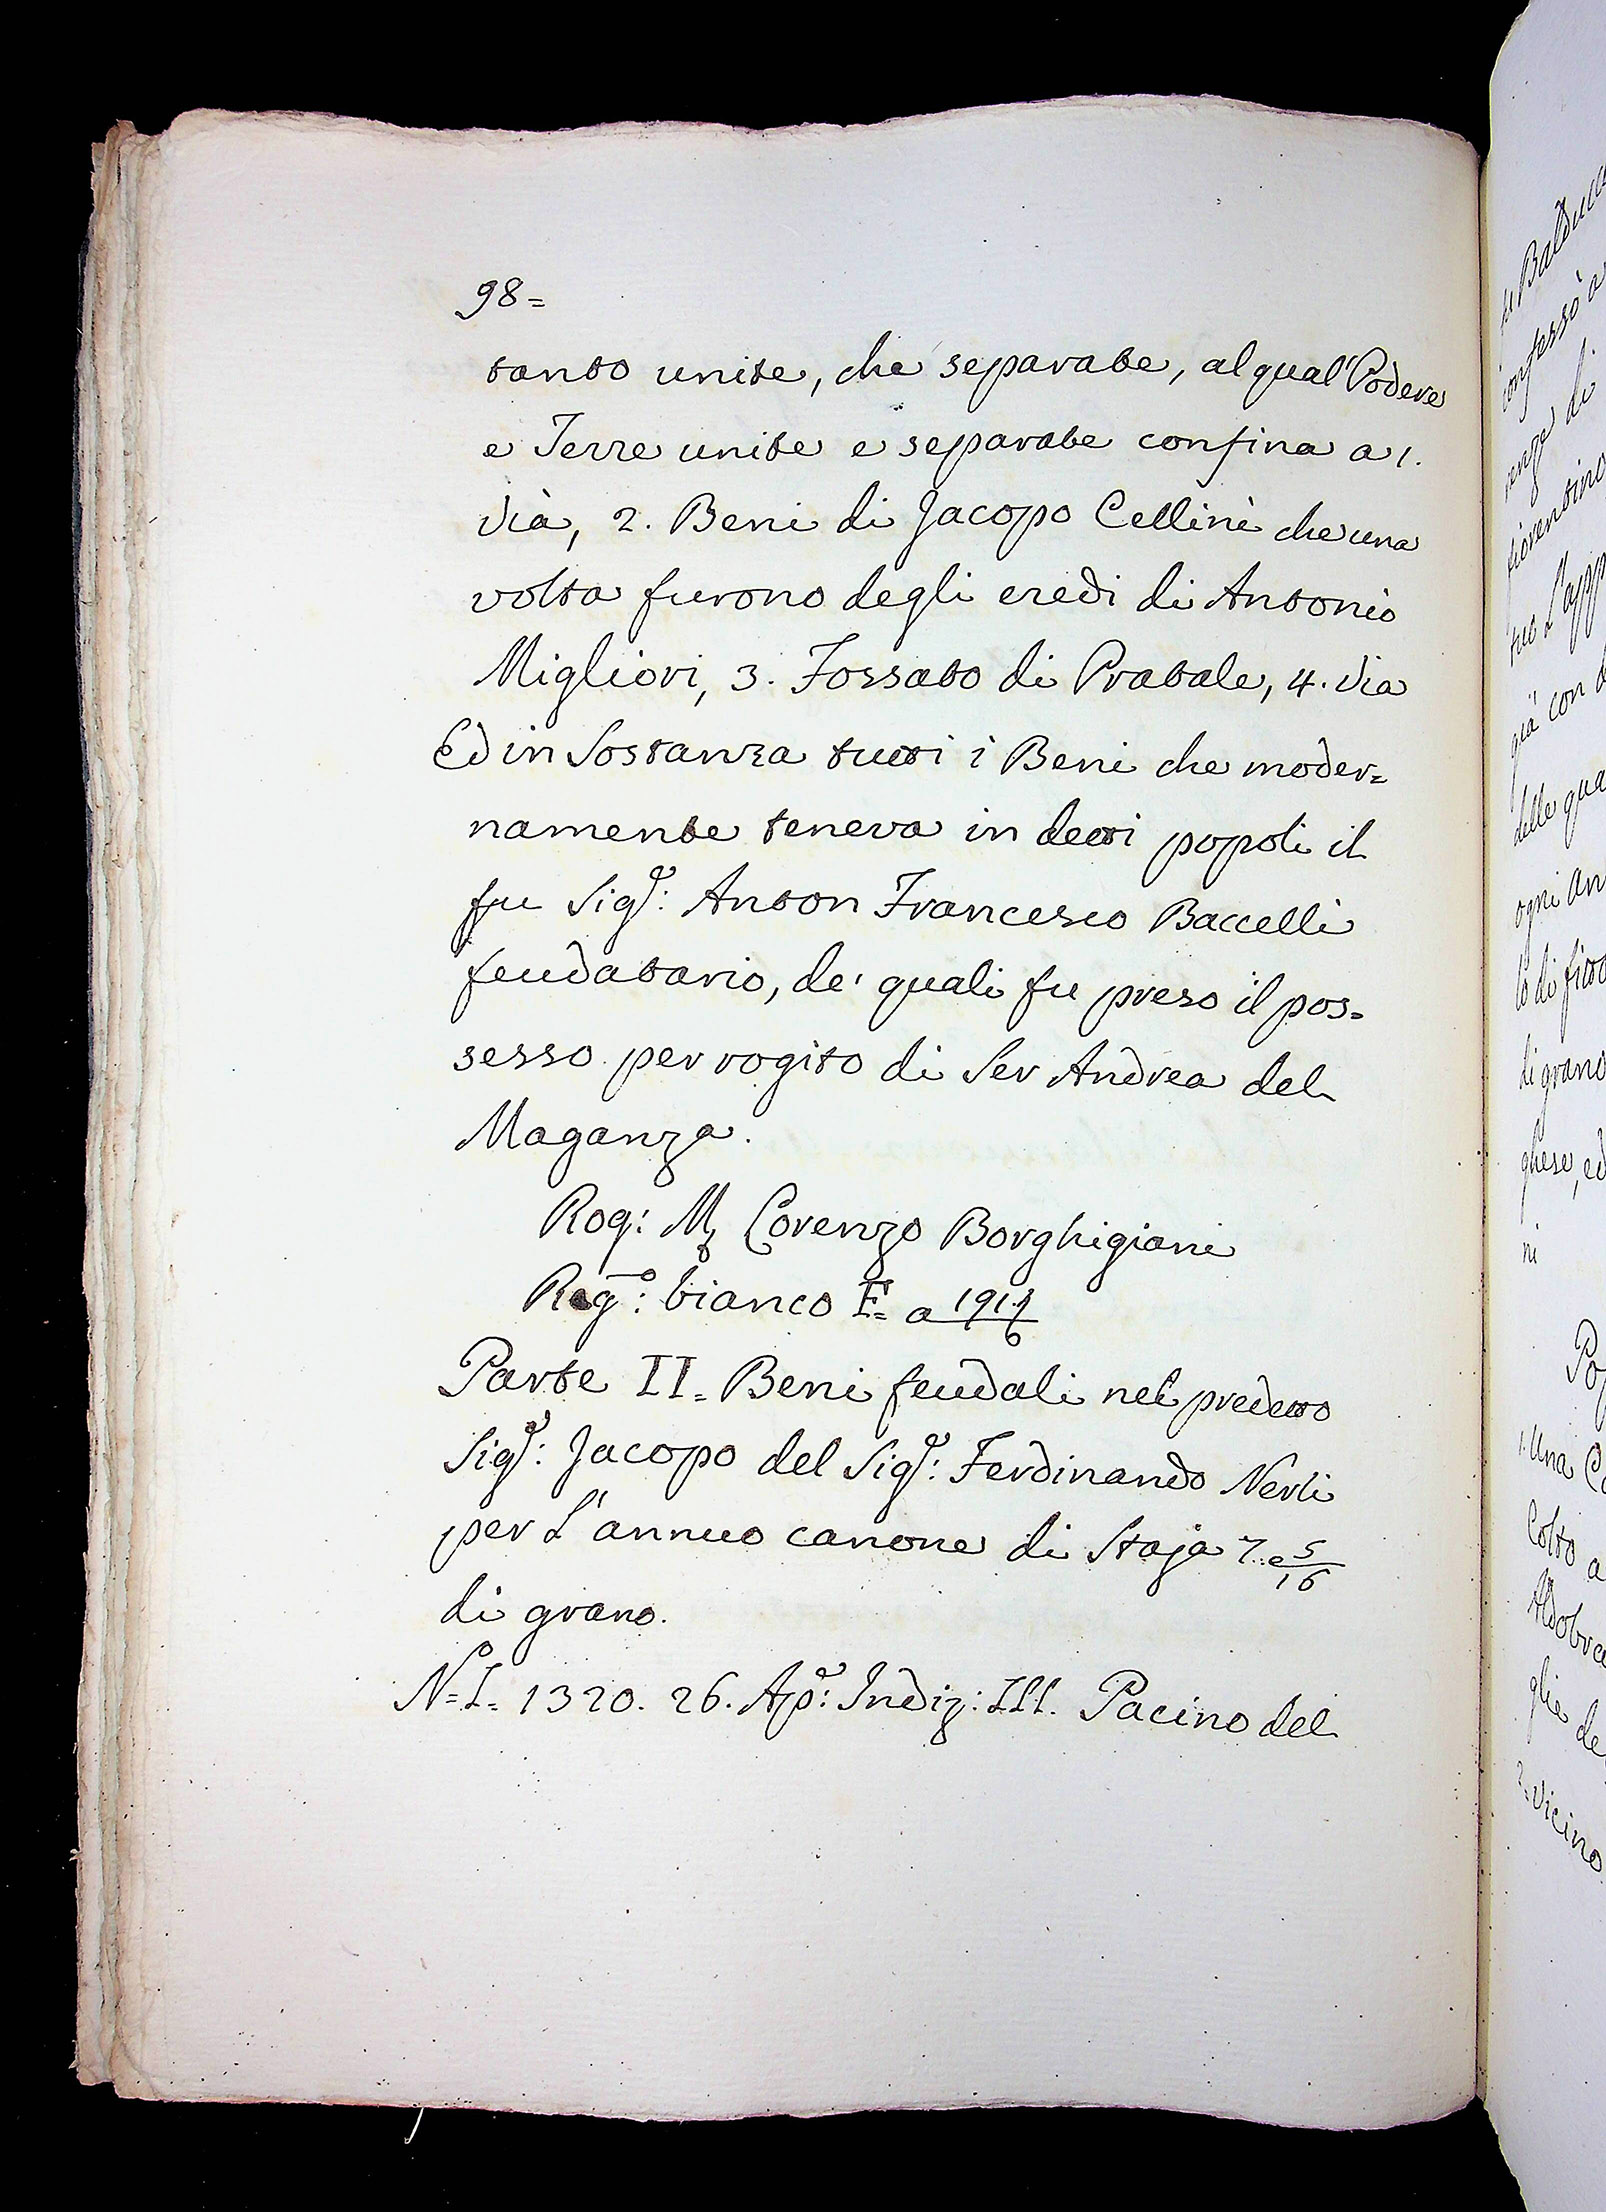 98=
tanto unite, che separate, al qual Podere
e Terre unite e separate confina a 1.
via, 2. Beni di Jacopo Cellini che una
volta furono degli eredi di Antonio
Migliori, 3. Fossato di Pratale, 4. via
Ed in Sostanza tutti i Beni che moder=
namente teneva in detti popoli il
fu Sig.e: Anton Francesco Baccelli
feudatario, de' quali fu preso il pos=
sesso per rogito di Ser Andrea del
Maganza.
Rog: M Lorenzo Borghigiani
Reg.o: bianco F= a
Parte II= Beni feudali nel predetto
Sig.e: Jacopo del Sig.e: Ferdinando Nerli
per L'annuo canone di Staja 7. e 5/16
di grano.
N.o= I= 1320. 26. Ap.e: Indiz: III. Pacino del
di grano
ogni
delle
già con
Una
Vicino